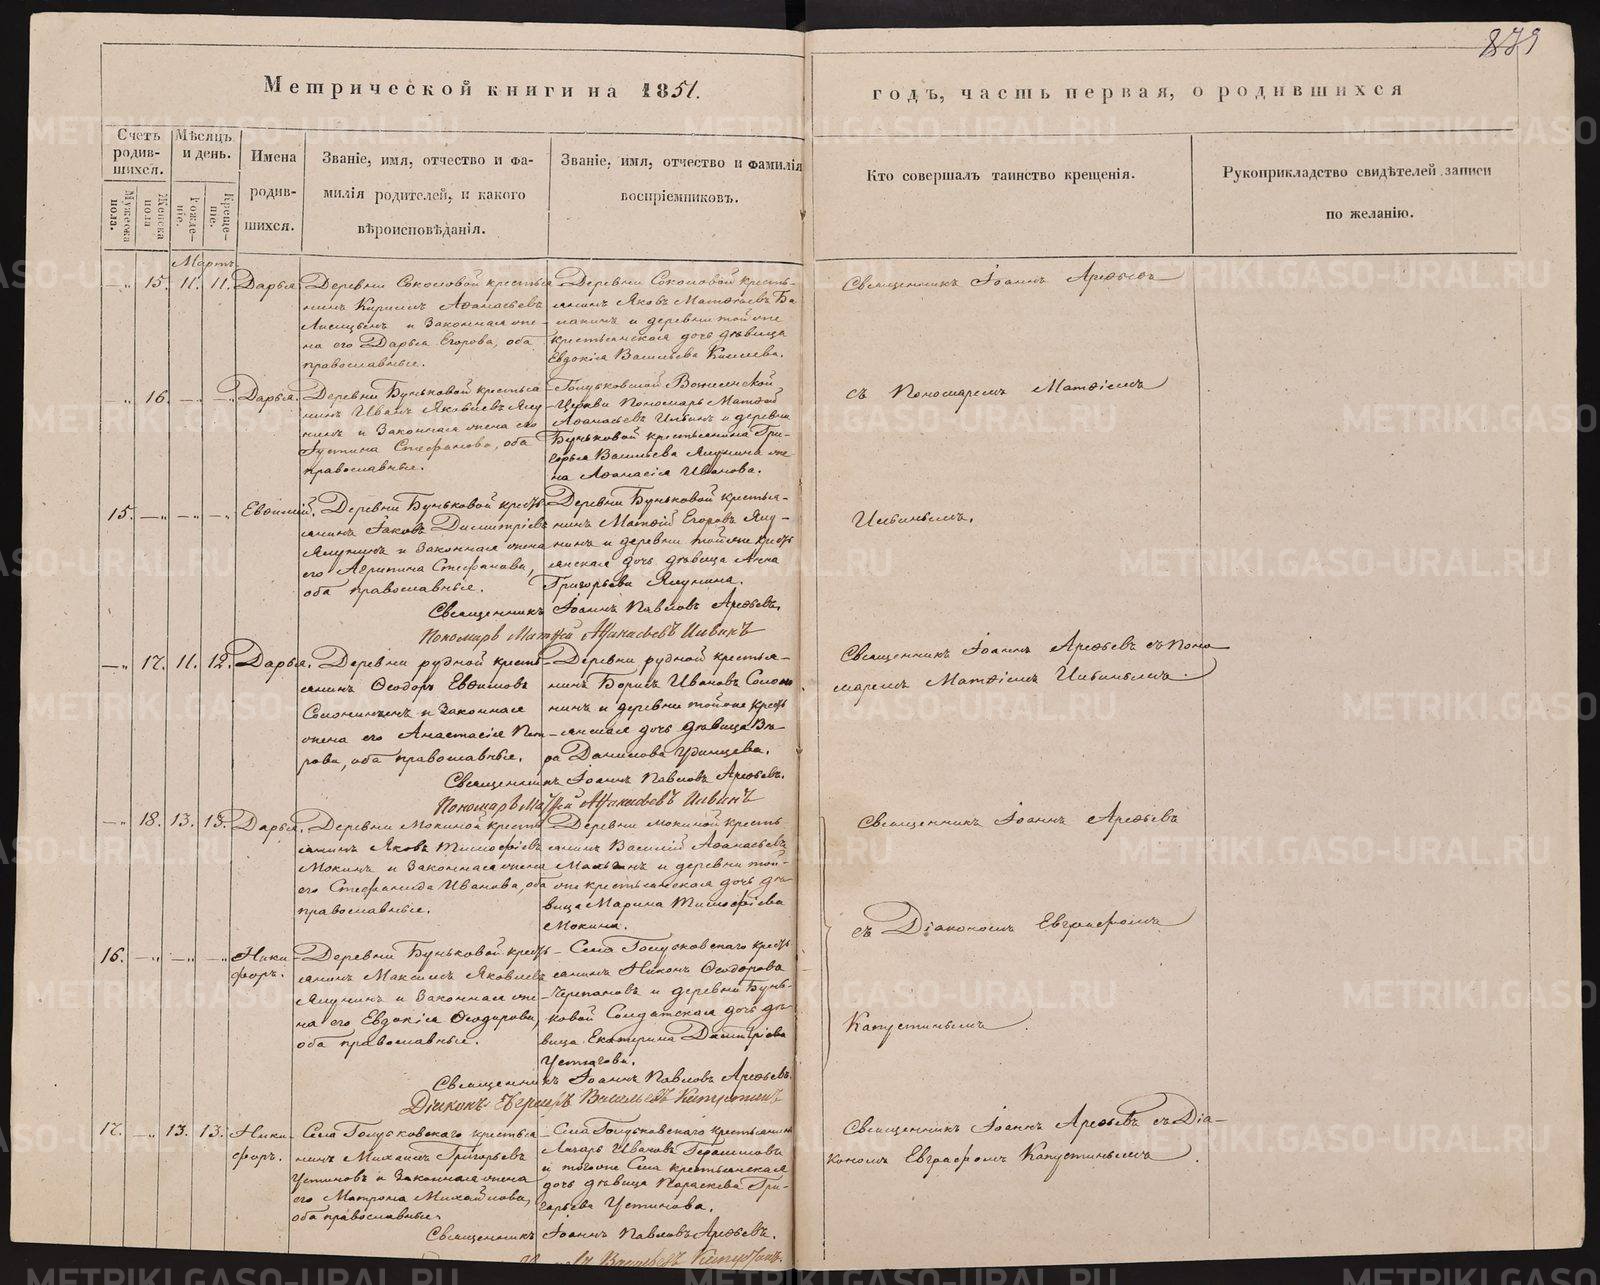 Метрической книги на 1851.
годъ, часть первая, о родившихся
Счетъ родив-шихся.
Мужеска пола.
Женска пола
Мѣсяцъ и день.
Рожде-ніе.
Креще-ніе.
Имена родив-шихся.
Званіе, имя, отчество и фа-
милія родителей, и какого
вѣроисповѣданія.
Званіе, имя, отчество и фамилія
воспріемниковъ.
Кто совершалъ таинство крещенія.
Рукоприкладство свидѣтелей записи
по желанію.
Мартъ
15. 11. 11. Дарья.
Деревни Соколовой крестья
нинъ Кирилъ Аѳанасьевъ
и законная же-
на его Дарья Егорова, оба
православные.
Деревни Соколовой кресть-
янинъ Яковъ Матѳіевъ Ба
лакинъ и деревни той же
крестьянская дочь дѣвица
Евдокія Васильева Киселева.
Священникъ Іоаннъ Арефьевъ
16. Дарья.
Деревни Буньковой крестья
нинъ Иванъ Яковлевъ Ялу
нинъ и законная жена его
Іустина Стефанова, оба
православные.
Голубковской Вознесенской
Церкви Пономарь Матѳей
Аѳанасьевъ Ильинъ и деревни
Буньковой крестьянина Гри-
горья Васильева Ялунина же
на Аѳанасія Иванова.
съ Пономаремъ Матѳіемъ
15. Евѳимій.
Деревни Буньковой кресть
янинъ Іаковъ Димитріевъ
Ялунинъ и законная жена
его Агрипина Стефанова,
оба православные.
Деревни Буньковой крестья-
нинъ Матѳій Егоровъ Ялу-
нинъ и деревни тойже кресть
янская дочь дѣвица Анна
Григорьева Ялунина.
Ильинымъ.
Священникъ Іоаннъ Павловъ Арефьевъ.
Пономарь Матѳей Афанасьевъ Ильинъ
17. 11. 12. Дарья.
Деревни рудной кресть-
янинъ Ѳеодоръ Евѳимовъ
Соломинъ и законная
жена его Анастасія Пет-
рова, оба православные.
Деревни рудной крестья-
нинъ Борисъ Ивановъ Соломи
нинъ и деревни тойже кресть
янская дочь дѣвица Вѣ-
ра Данилова Удинцева.
Священникъ Іоаннъ Арефьевъ съ Поно
маремъ Матѳіемъ Ильинымъ.
Священникъ Іоаннъ Павловъ Арефьевъ.
Пономарь Матѳей Афанасьевъ Ильинъ
18. 13. 13. Дарья.
Деревни Мокиной кресть
янинъ Яковъ Тимофіевъ
Мокинъ и законная жена
его Стефанида Иванова, оба
православные.
Деревни Мокиной кресть-
янинъ Василій Аѳанасьевъ
и деревни той-
же крестьянская дочь дѣ-
вица Марина Тимофіева
Мокина.
Священникъ Іоаннъ Арефьевъ
16. Ники-
форъ.
Деревни Буньковой кресть
янинъ Максимъ Яковлевъ
Ялунинъ и законная же-
на его Евдокія Ѳеодорова,
оба православные.
Села Голубковскаго кресть
янинъ Никонъ Ѳеодоровъ
Черепановъ и деревни Бунь-
ковой Солдатская дочь дѣ-
вица Екатерина Димитріева
съ Діакономъ Евграфомъ
Капустинымъ.
Священникъ Іоаннъ Павловъ Арефьевъ.
Діаконъ Евграфъ Васильевъ Капустинъ
17. 13. 13. Ники-
форъ.
Села Голубковскаго крестья
нинъ Михаилъ Григорьевъ
Устиновъ и законная жена
его Матрона Михайлова,
оба православные.
Села Голубковскаго крестьянинъ
Лазарь Ивановъ Герасимовъ
и тогоже Села крестьянская
дочь дѣвица Параскева Гри-
горьева Устинова.
Священникъ Іоаннъ Арефьевъ съ Діа-
кономъ Евграфомъ Капустинымъ.
Священникъ Іоаннъ Павловъ Арефьевъ.
Васильевъ Капустинъ.
METRIKI.GASO-URAL.RU